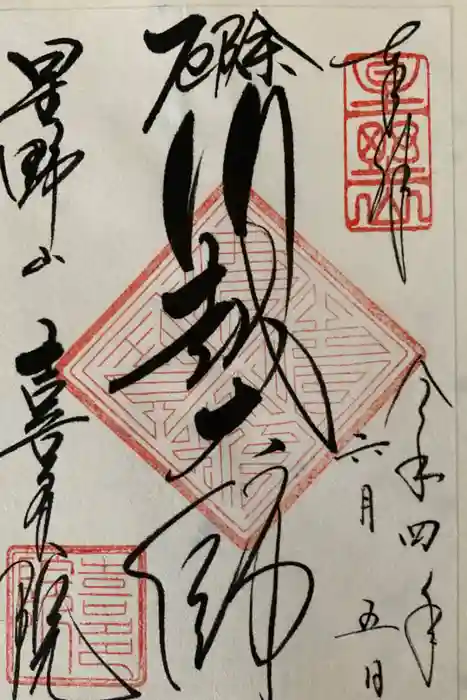 奉拝
令和四年
六月五日
厄除
川越大師
星野山
喜多院
星野山